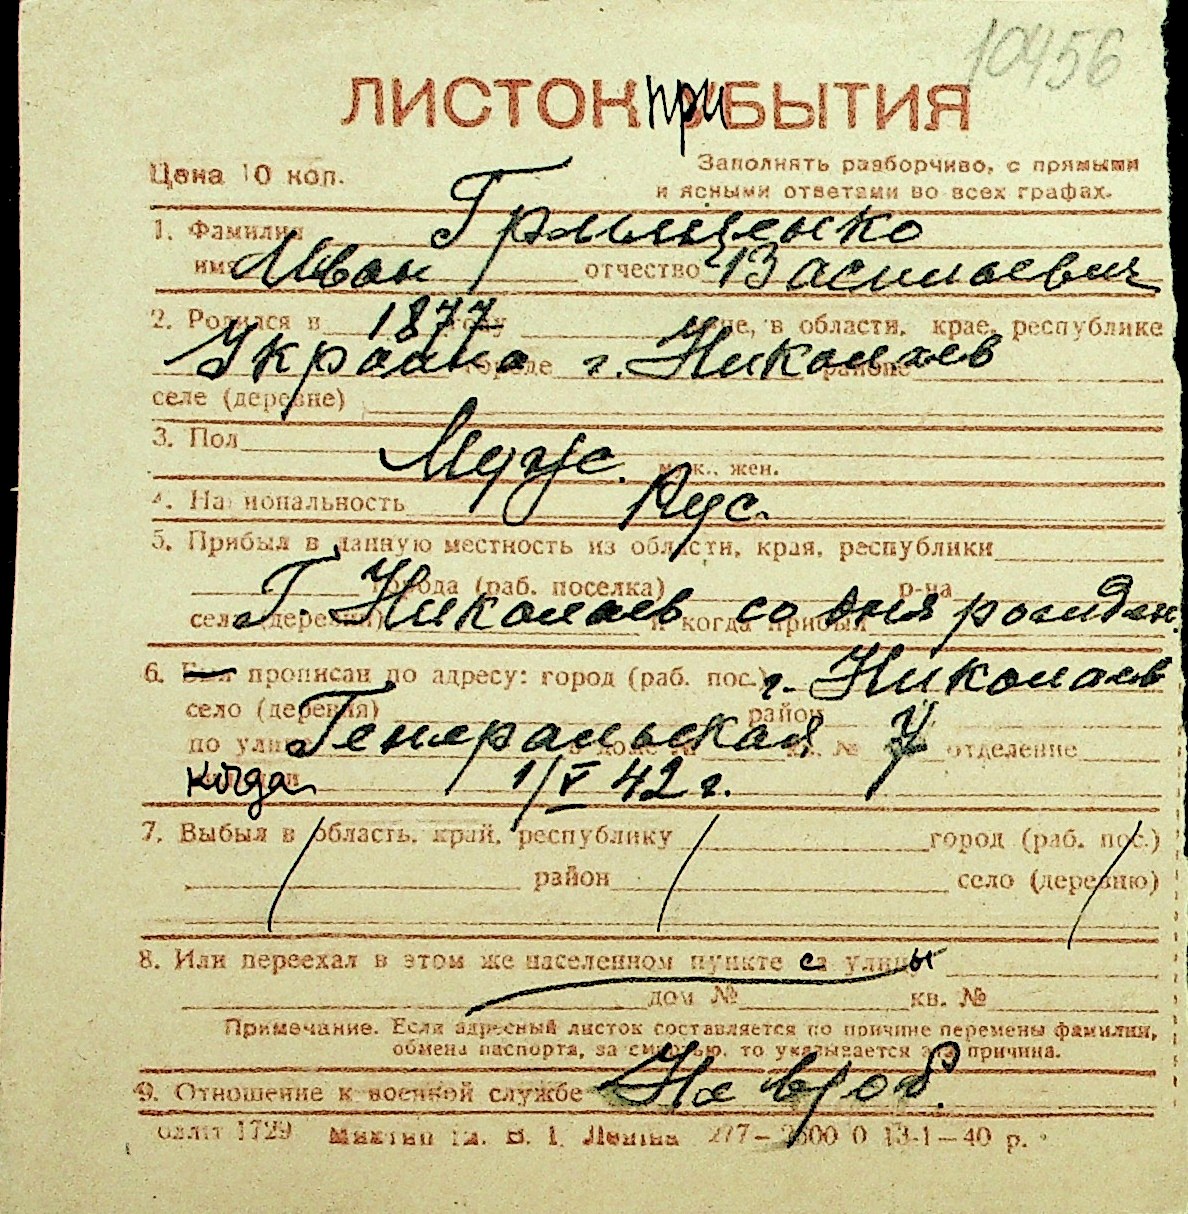 10456
ЛИСТОК приБЫТИЯ
Цена 10 коп.
Заполнять разборчиво, с прямыми
и ясными ответами во всех графах.
1. Фамилия Грищенко
имя Иван отчество Васильевич
2. Родился в 1877 году в области, крае, республике
Украина городе г. Николаев районе
селе (деревне)
3. Пол Муж.
муж., жен.
4. Национальность Рус.
5. Прибыл в данную местность из области, края, республики
города (раб. поселка) р-на
Г. Николаев со дня рожден.
села (деревни) и когда прибыл
6. Был прописан по адресу: город (раб. пос.) г. Николаев
село (деревня) район
по улице Генеральская 7 кв. № отделение
когда 1/V 42 г.
7. Выбыл в область, край, республику город (раб. пос.)
район село (деревню)
8. Или переехал в этом же населенном пункте с улицы
дом № кв. №
Примечание. Если адресный листок составляется по причине перемены фамилии,
обмена паспорта, за смертью, то указывается эта причина.
9. Отношение к военной службе Не
1729 В. І. Леніна 277–2500 0 13-1–40 р.